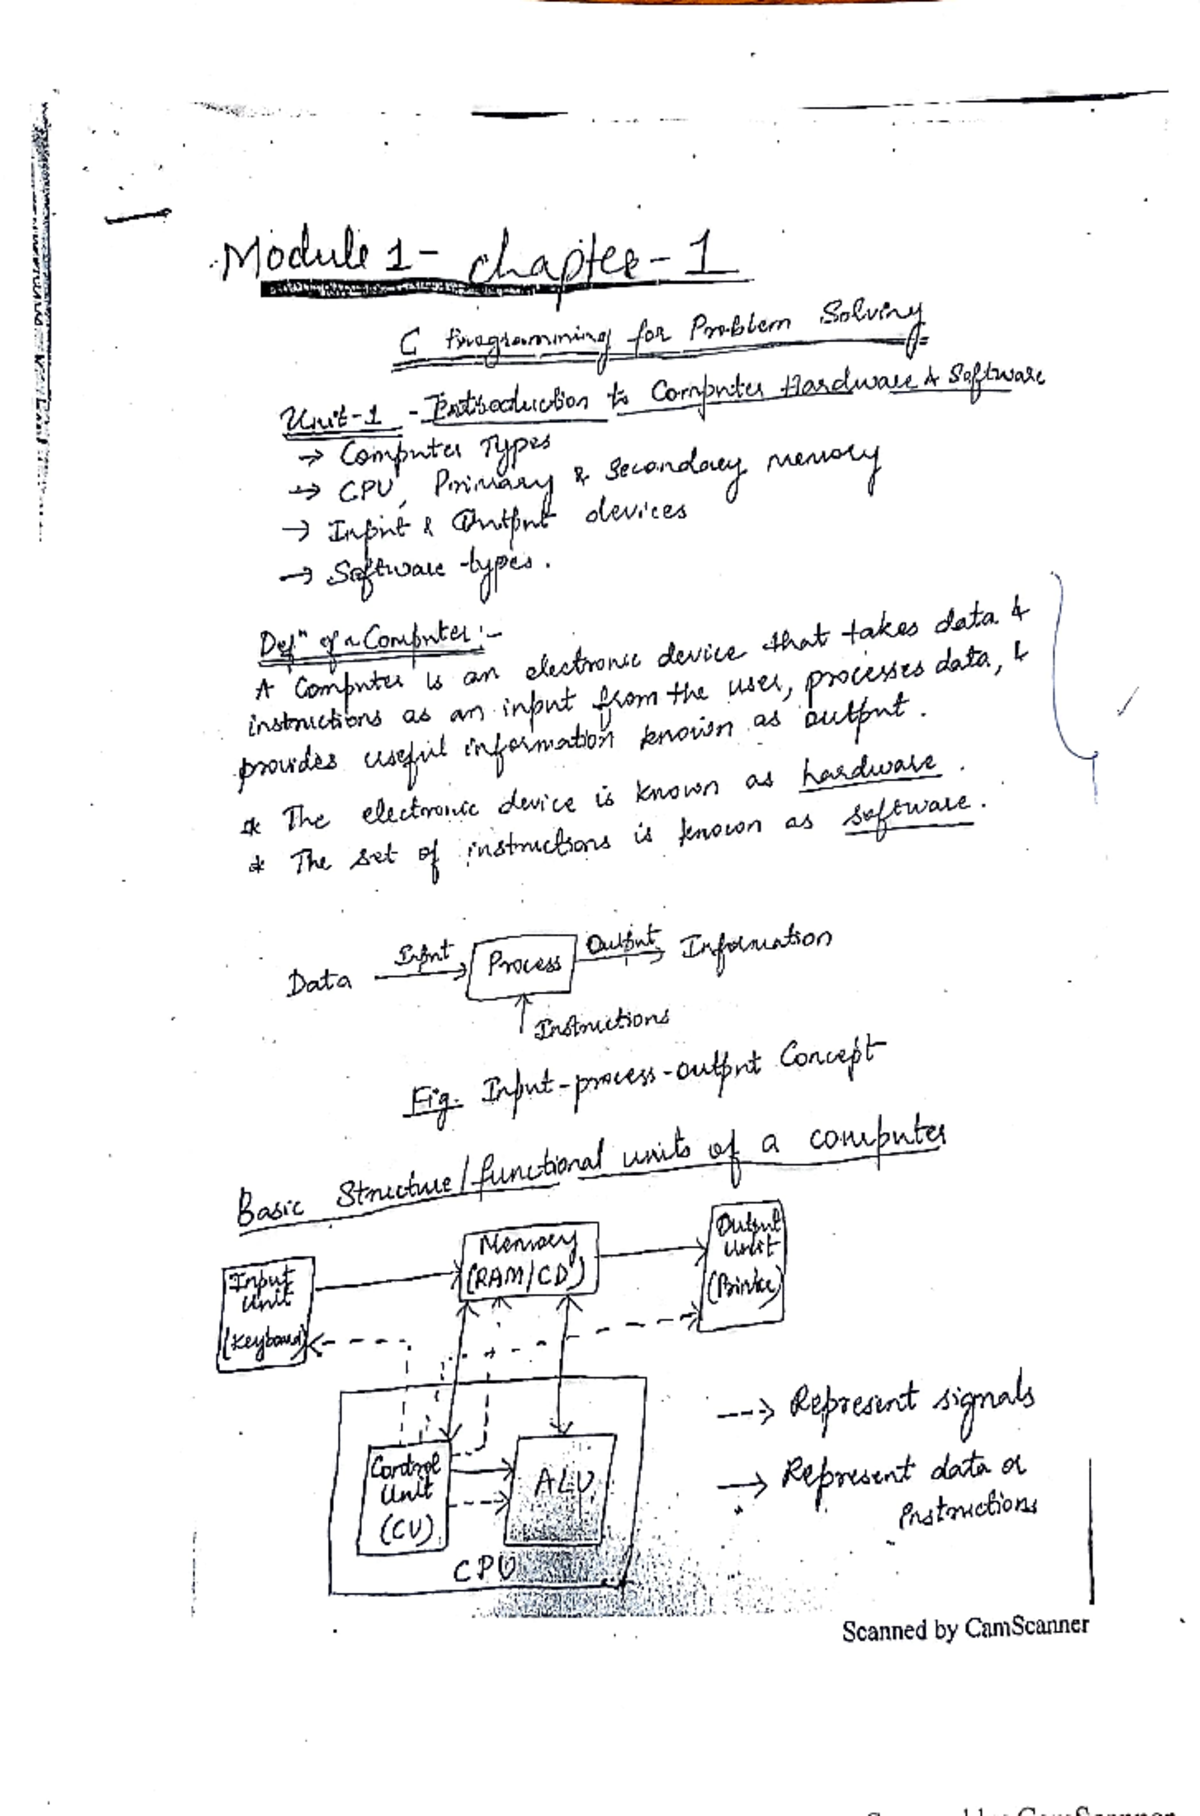 Module 1 - chapter - 1
C Programming for Problem Solving
Unit-1 - Introduction to Computer Hardware & Software
→ Computer Types
→ CPU, Primary & Secondary memory
→ Input & Output devices
→ Software types.
Defⁿ of a Computer :-
A Computer is an electronic device that takes data &
instructions as an input from the user, processes data, &
provides useful information known as output.
* The electronic device is known as hardware.
* The set of instructions is known as software.
Data Input Process Output Information
Instructions
Fig. Input-process-output Concept
Basic Structure/functional units of a computer
Input
Unit
(Keyboard)
Memory
(RAM/CD)
Output
Unit
(Printer)
Control
Unit
(CU)
ALU
CPU
---> Represent signals
→ Represent data or
Instructions
Scanned by CamScanner